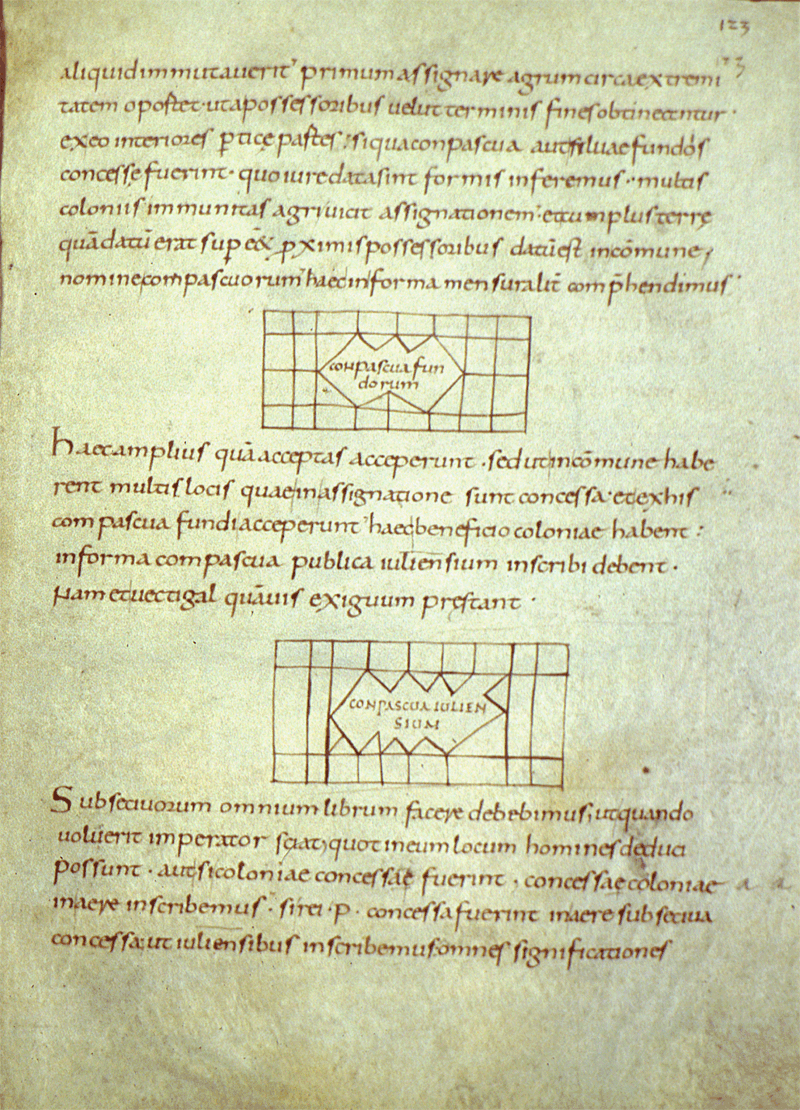 123
aliquid immutauerit' primum assignare agrum circa extremi
tatem opostet · uta possessoribus uelut terminis fines obtineantur ·
ex eo interiores ptice partes : si qua conpascua aut siluae fundos
concesse fuerint · quo iure data sint formis inferemus · multis
coloniis immunitas agri uicit assignationem · et cum plus terre
quā datū erat sup eēt p̱ximis possessoribus datū est incōmune
nomine compascuorum haec in forma mensuralit comp̄hendimus
conpascua fun
dorum
haec amplius quā acceptas acceperunt · sed ut incōmune habe
rent multis locis quae in assignatione sunt concessa · et ex his
compascua fundi acceperunt haec beneficio coloniae habent :
in forma compascua publica iuliensium inscribi debent ·
nam et uectigal quāuis exiguum prestant ·
CONPASCUA IULIEN
SIUM
Subseciuorum omnium librum facere debebimus, ut quando
uoluerit imperator sciat, quot in eum locum homines deduci
possunt · aut si coloniae concessae fuerint · concessae coloniae
in aere inscribemus · si rei · p · concessa fuerint in aere subseciua
concessa, ut iuliensibus inscribemus. omnes significationes